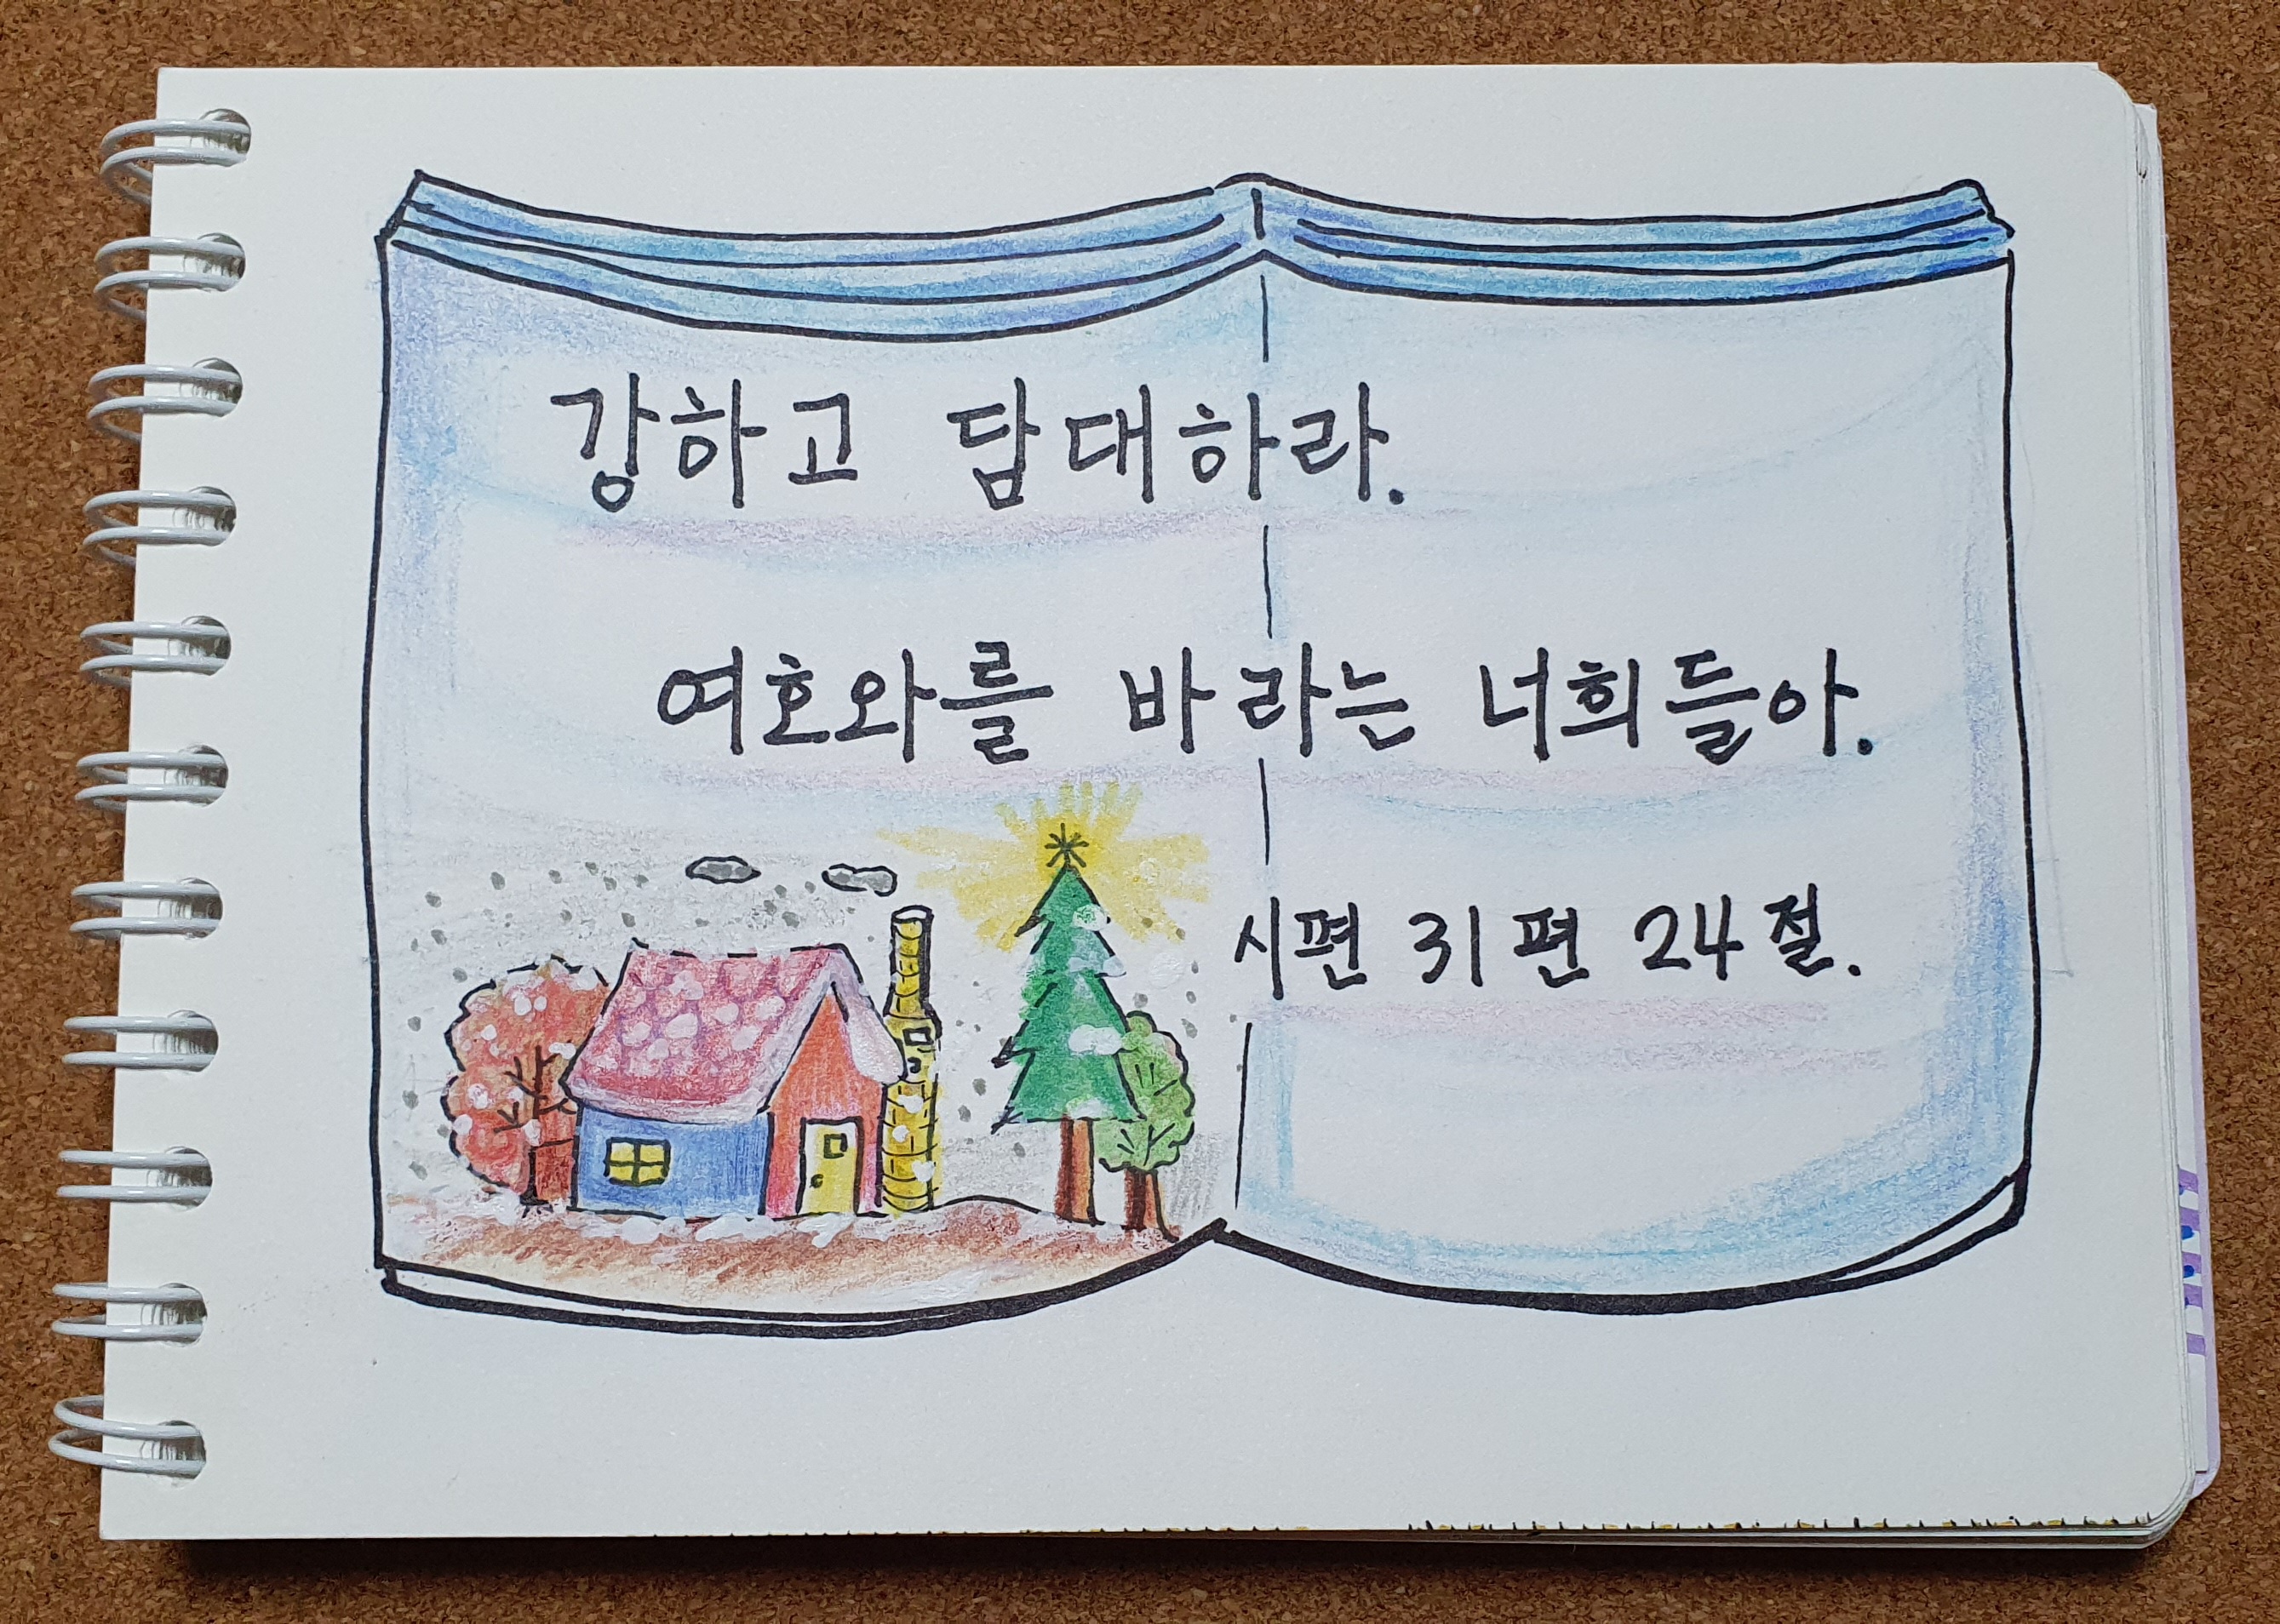 강하고 담대하라.
여호와를 바라는 너희들아.
시편 31편 24절.